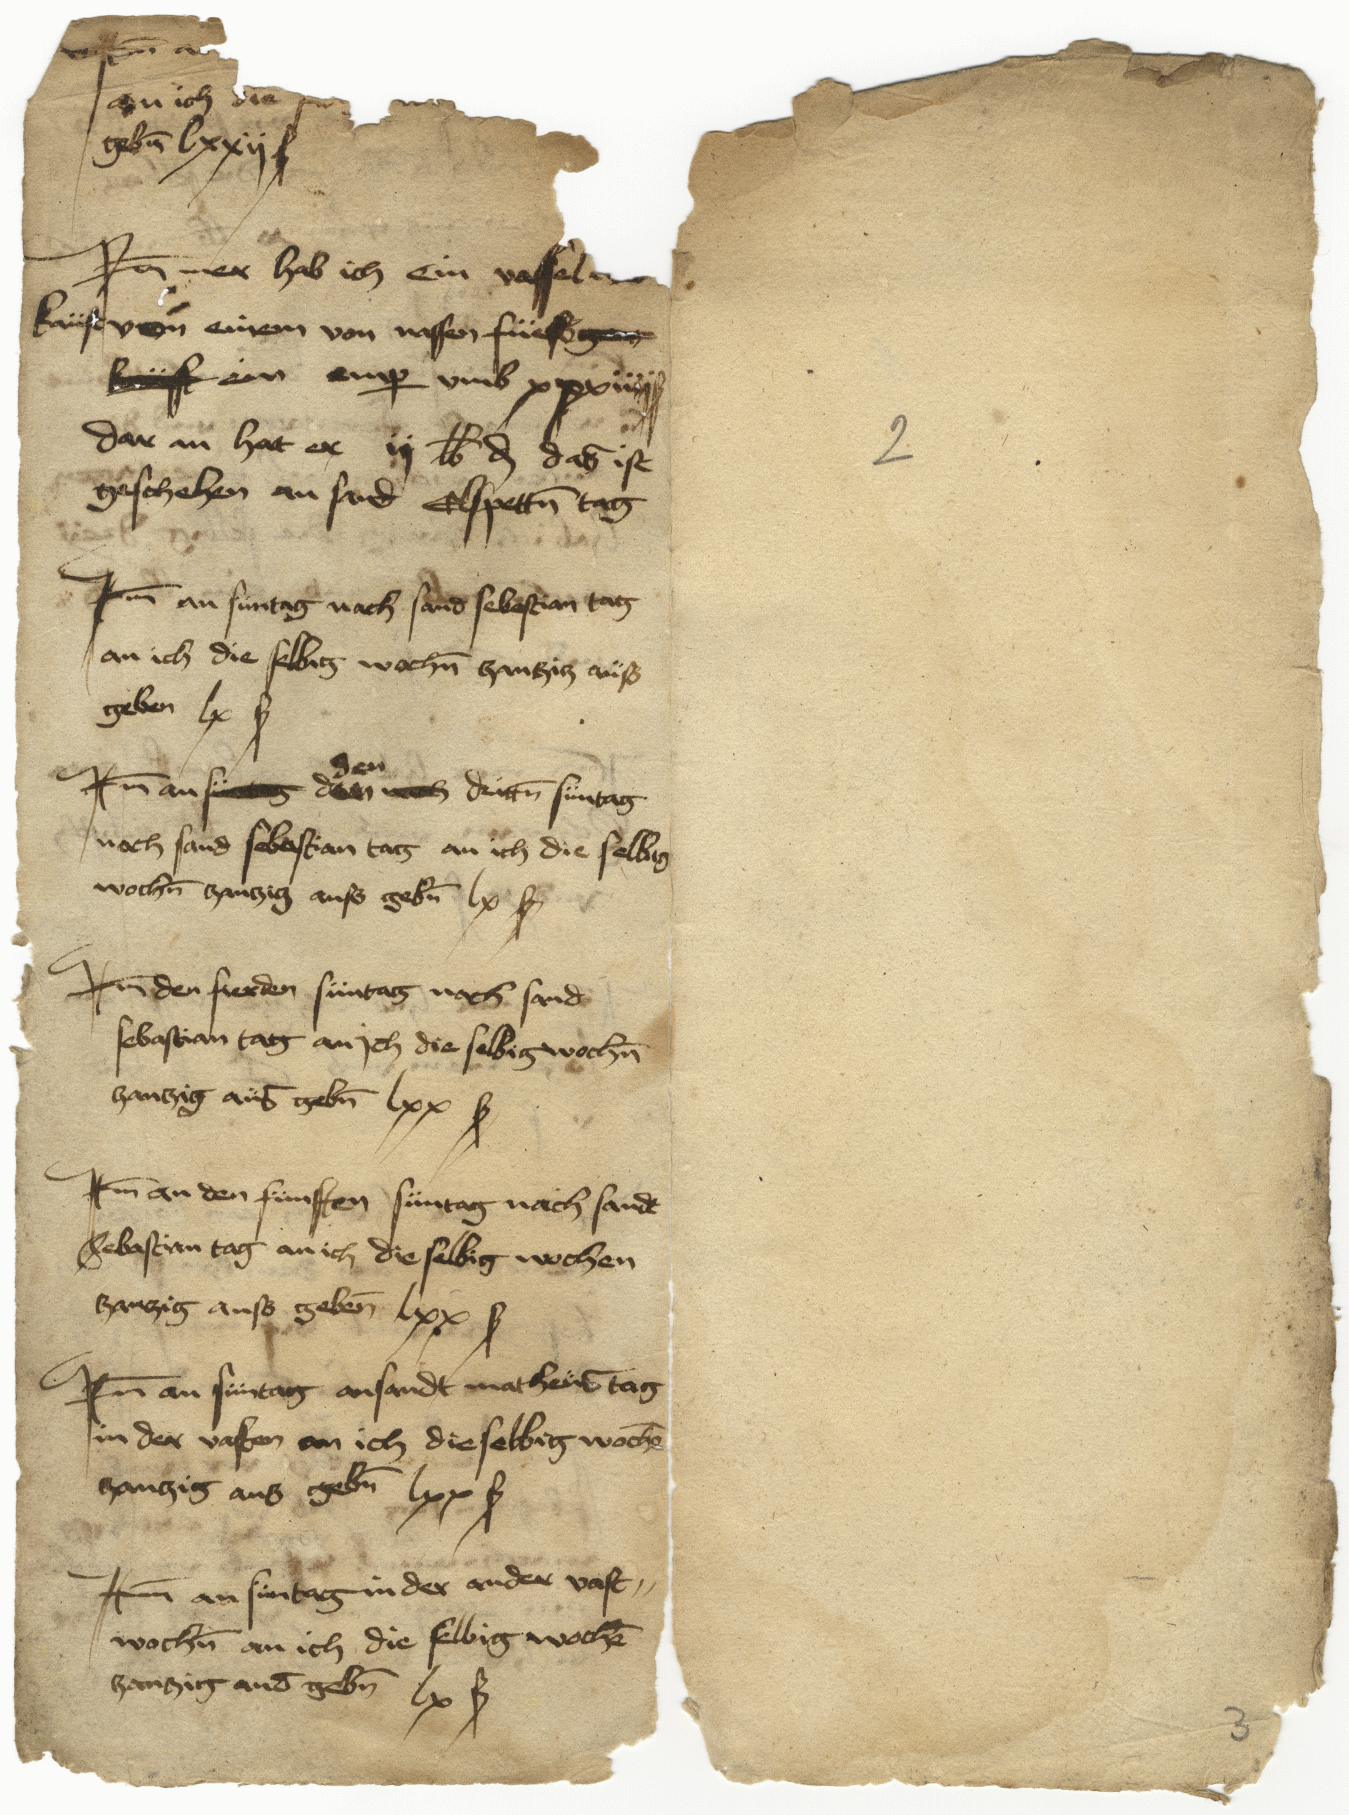 an ich die
gebn̄ lxxij ₰
Itm̄ mer hab ich ein vassel
kaüft von einem von nassen füess
ein emꝑ vmb xxxiiij ₰
dar an hat er ij lb d das ist
geschehen an sand Elspettn̄ tag
Itm̄ an süntag nach sand sebastian tag
an ich die selbig wochn̄ gantzig aüss
geben lx ₰
Itm̄ an süntag den den noch drittn̄ süntag
noch sand sebastian tag an ich die selbig
wochn̄ gantzig auss gebn̄ lx ₰
Itm̄ den fierden süntag noch sand
sebastian tag an jch die selbig wochn̄
gantzig aüs gebn̄ lxx ₰
Itm̄ an den fünfften süntag nach sandt
Sebastian tag an ich die selbig wochen
gantzig auss geben̄ lxx ₰
Itm̄ an süntag an sandt matheüs tag
in der vasten an ich die selbig wochē
gantzig aus gebn̄ lxx ₰
Itm̄ an süntag in der ander vast〃
wochn̄ an ich die selbig wochē
gantzig aus gebn̄ lx ₰
2
3